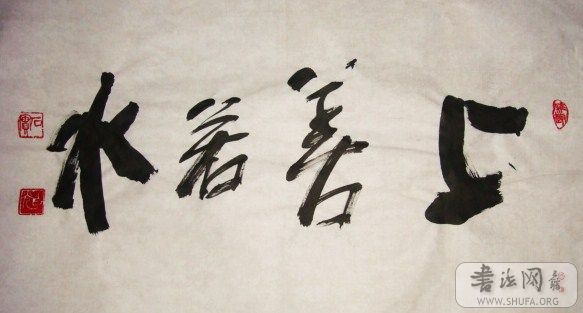 上善若水
书法网
WWW.SHUFA.ORG